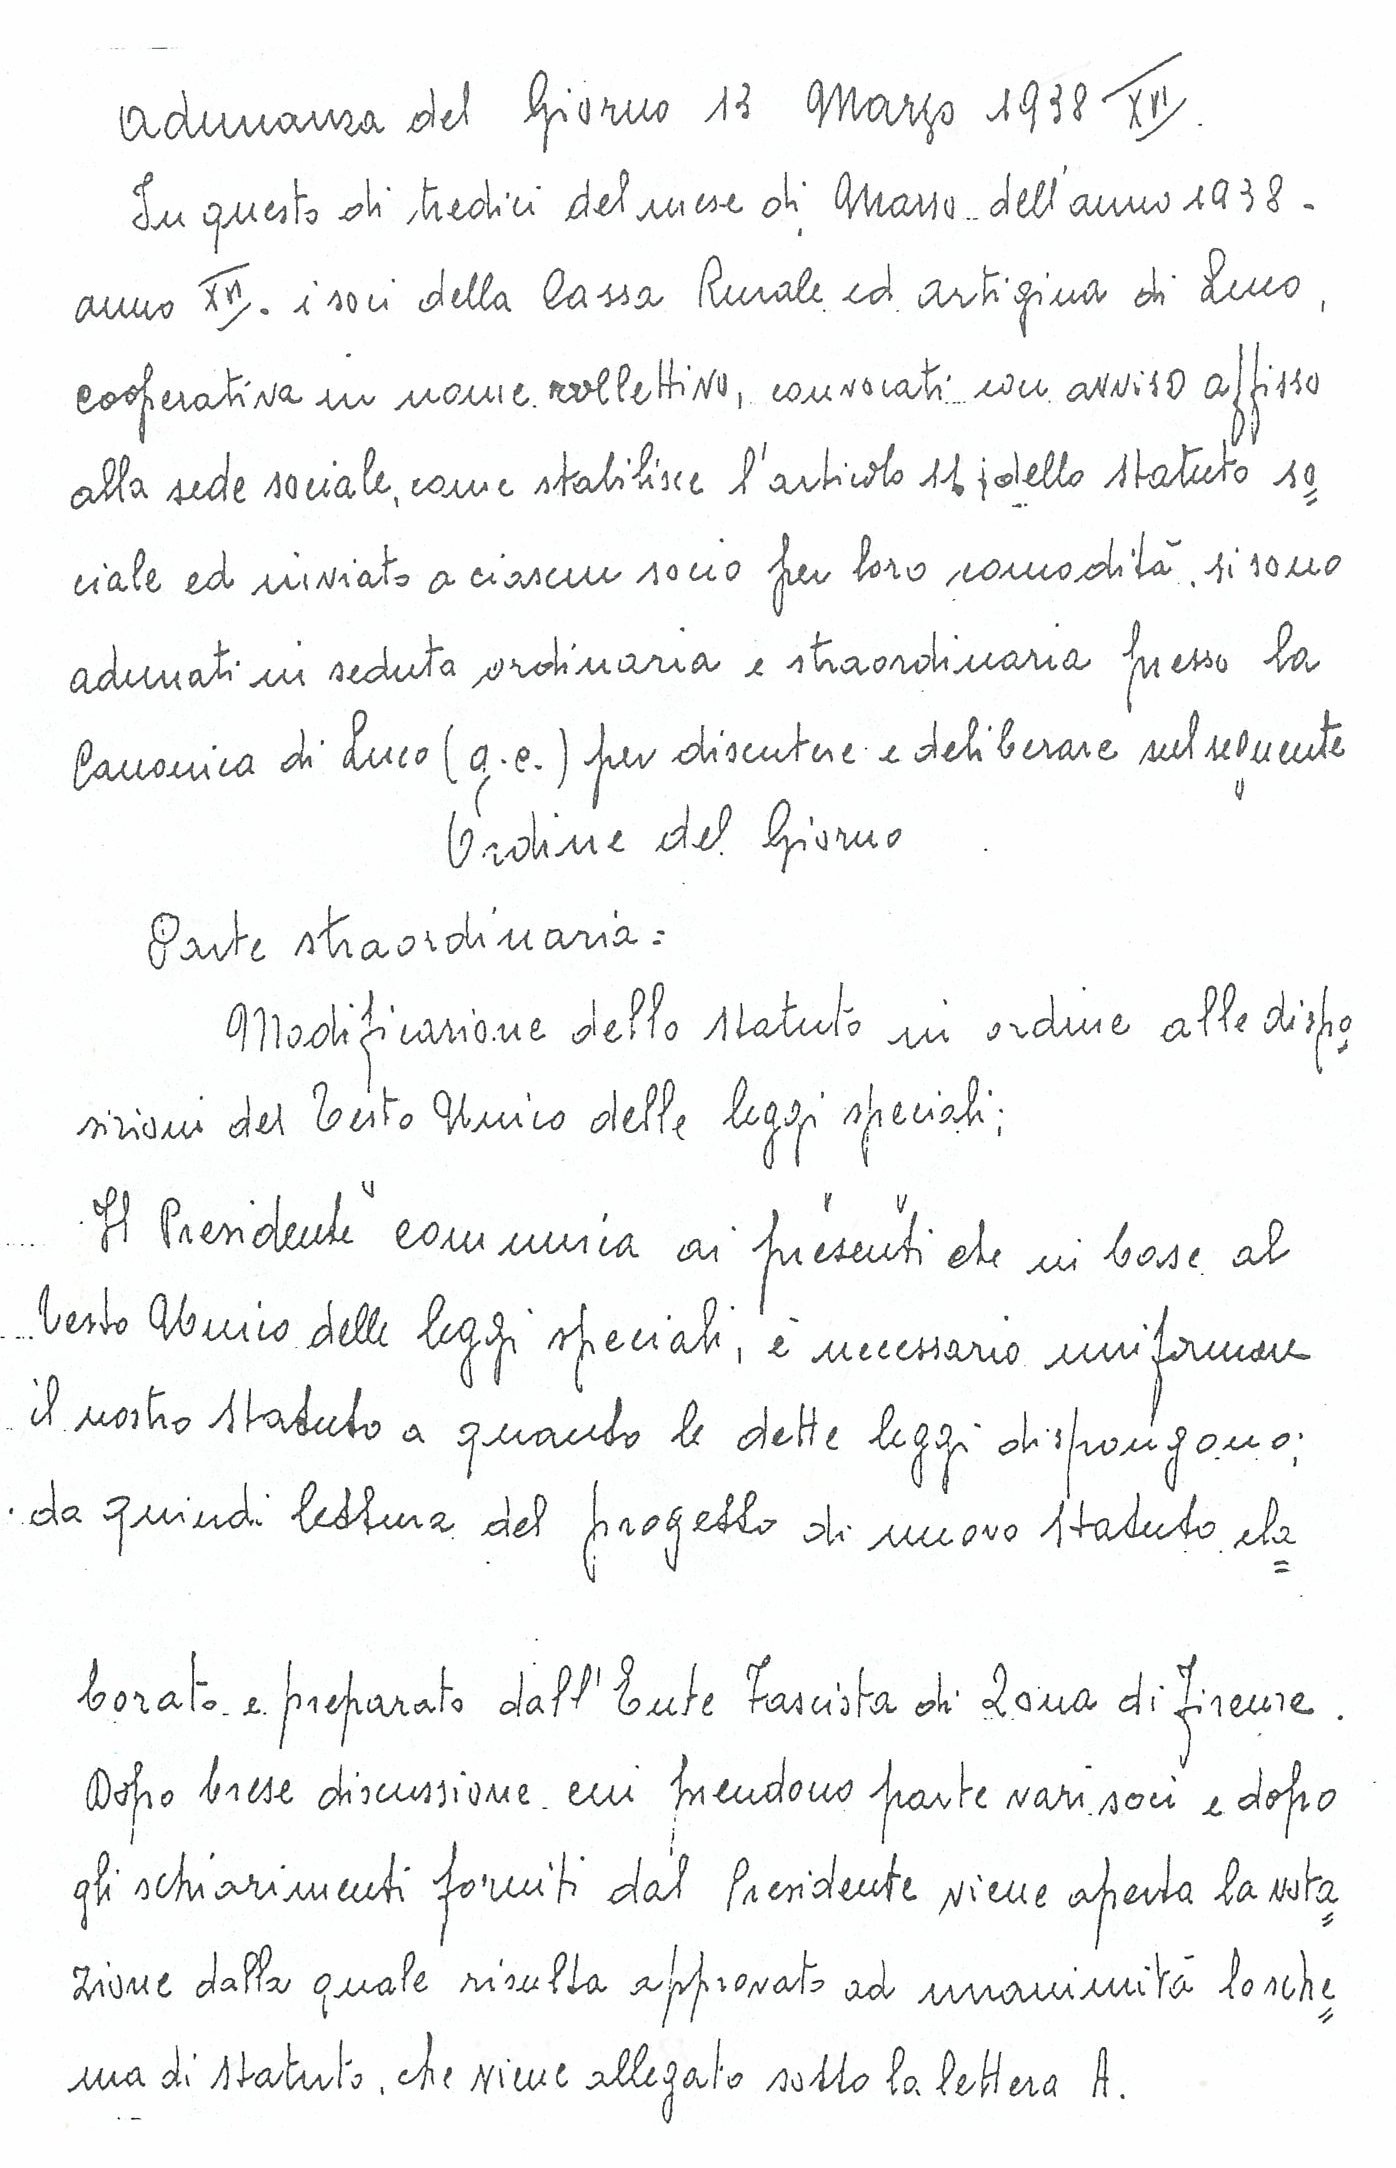 Adunanza del Giorno 13 Marzo 1938 XVI.
In questo di tredici del mese di Marzo dell'anno 1938 -
anno XVI. i soci della Cassa Rurale ed artigina di Luco,
cooperativa in nome collettivo, convocati con avviso affisso
alla sede sociale, come stabilisce l'articolo 11 dello statuto so=
ciale ed inviato a ciascun socio per loro comodità, si sono
adunati in seduta ordinaria e straordinaria presso la
Canonica di Luco (g.c.) per discutere e deliberare sul seguente
Ordine del Giorno
Parte straordinaria:
Modificazione dello statuto in ordine alle dispo=
sizioni del Testo Unico delle leggi speciali;
Il Presidente comunica ai presenti che in base al
Testo Unico delle leggi speciali, è necessario uniformare
il nostro statuto a quanto le dette leggi dispongono;
da quindi lettura del progetto di nuovo statuto ela=
borato e preparato dall'Ente Fascista di Zona di Firenze.
Dopo breve discussione cui prendono parte vari soci e dopo
gli schiarimenti forniti dal Presidente viene aperta la vota=
zione dalla quale risulta approvato ad unanimità lo sche=
ma di statuto, che viene allegato sotto la lettera A.